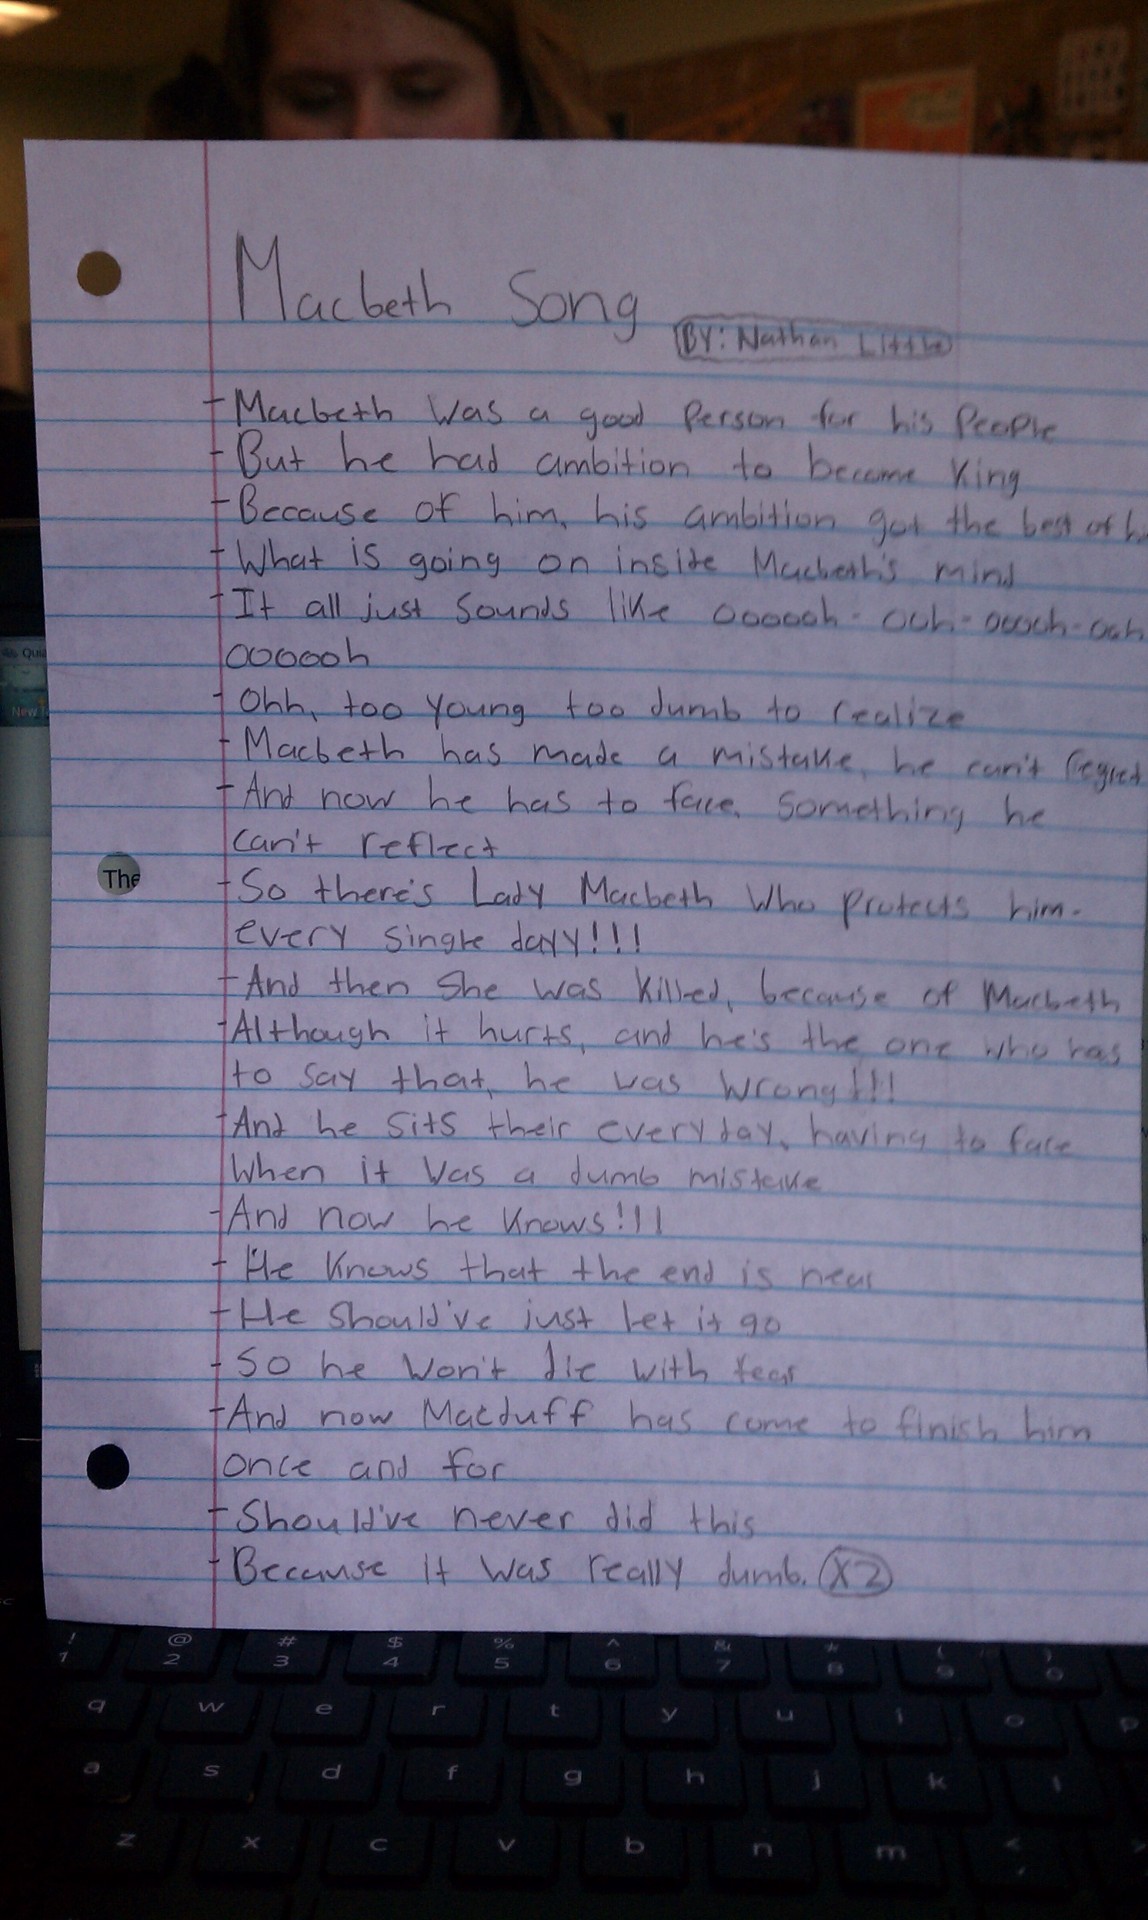 Macbeth Song
BY: Nathan Little
- Macbeth was a good Person for his People
- But he had ambition to become King
- Because of him, his ambition got the best of h
- What is going on inside Macbeth's mind
- It all just sounds like oooooh - ooh - ooooh - ooh
oooooh
- Ohh, too young too dumb to realize
- Macbeth has made a mistake, he can't Regret
- And now he has to face, something he
can't reflect
- So there's Lady Macbeth who protects him-
every single dayy!!!
- And then she was killed, because of Macbeth
- Although it hurts, and he's the one who has
to say that, he was wrong!!!
- And he sits their everyday, having to face
When it was a dumb mistake
- And now he knows!!!
- He knows that the end is near
- He should've just let it go
- So he won't die with fear
- And now Macduff has come to finish him
once and for
- Should've never did this
- Because it was really dumb. X2
The
Quic
New T
! @ # $ % ^ & * ( )
1 2 3 4 5 6 7 8 9 0
q w e r t y u i o p
a s d f g h j k l
z x c v b n m < ,